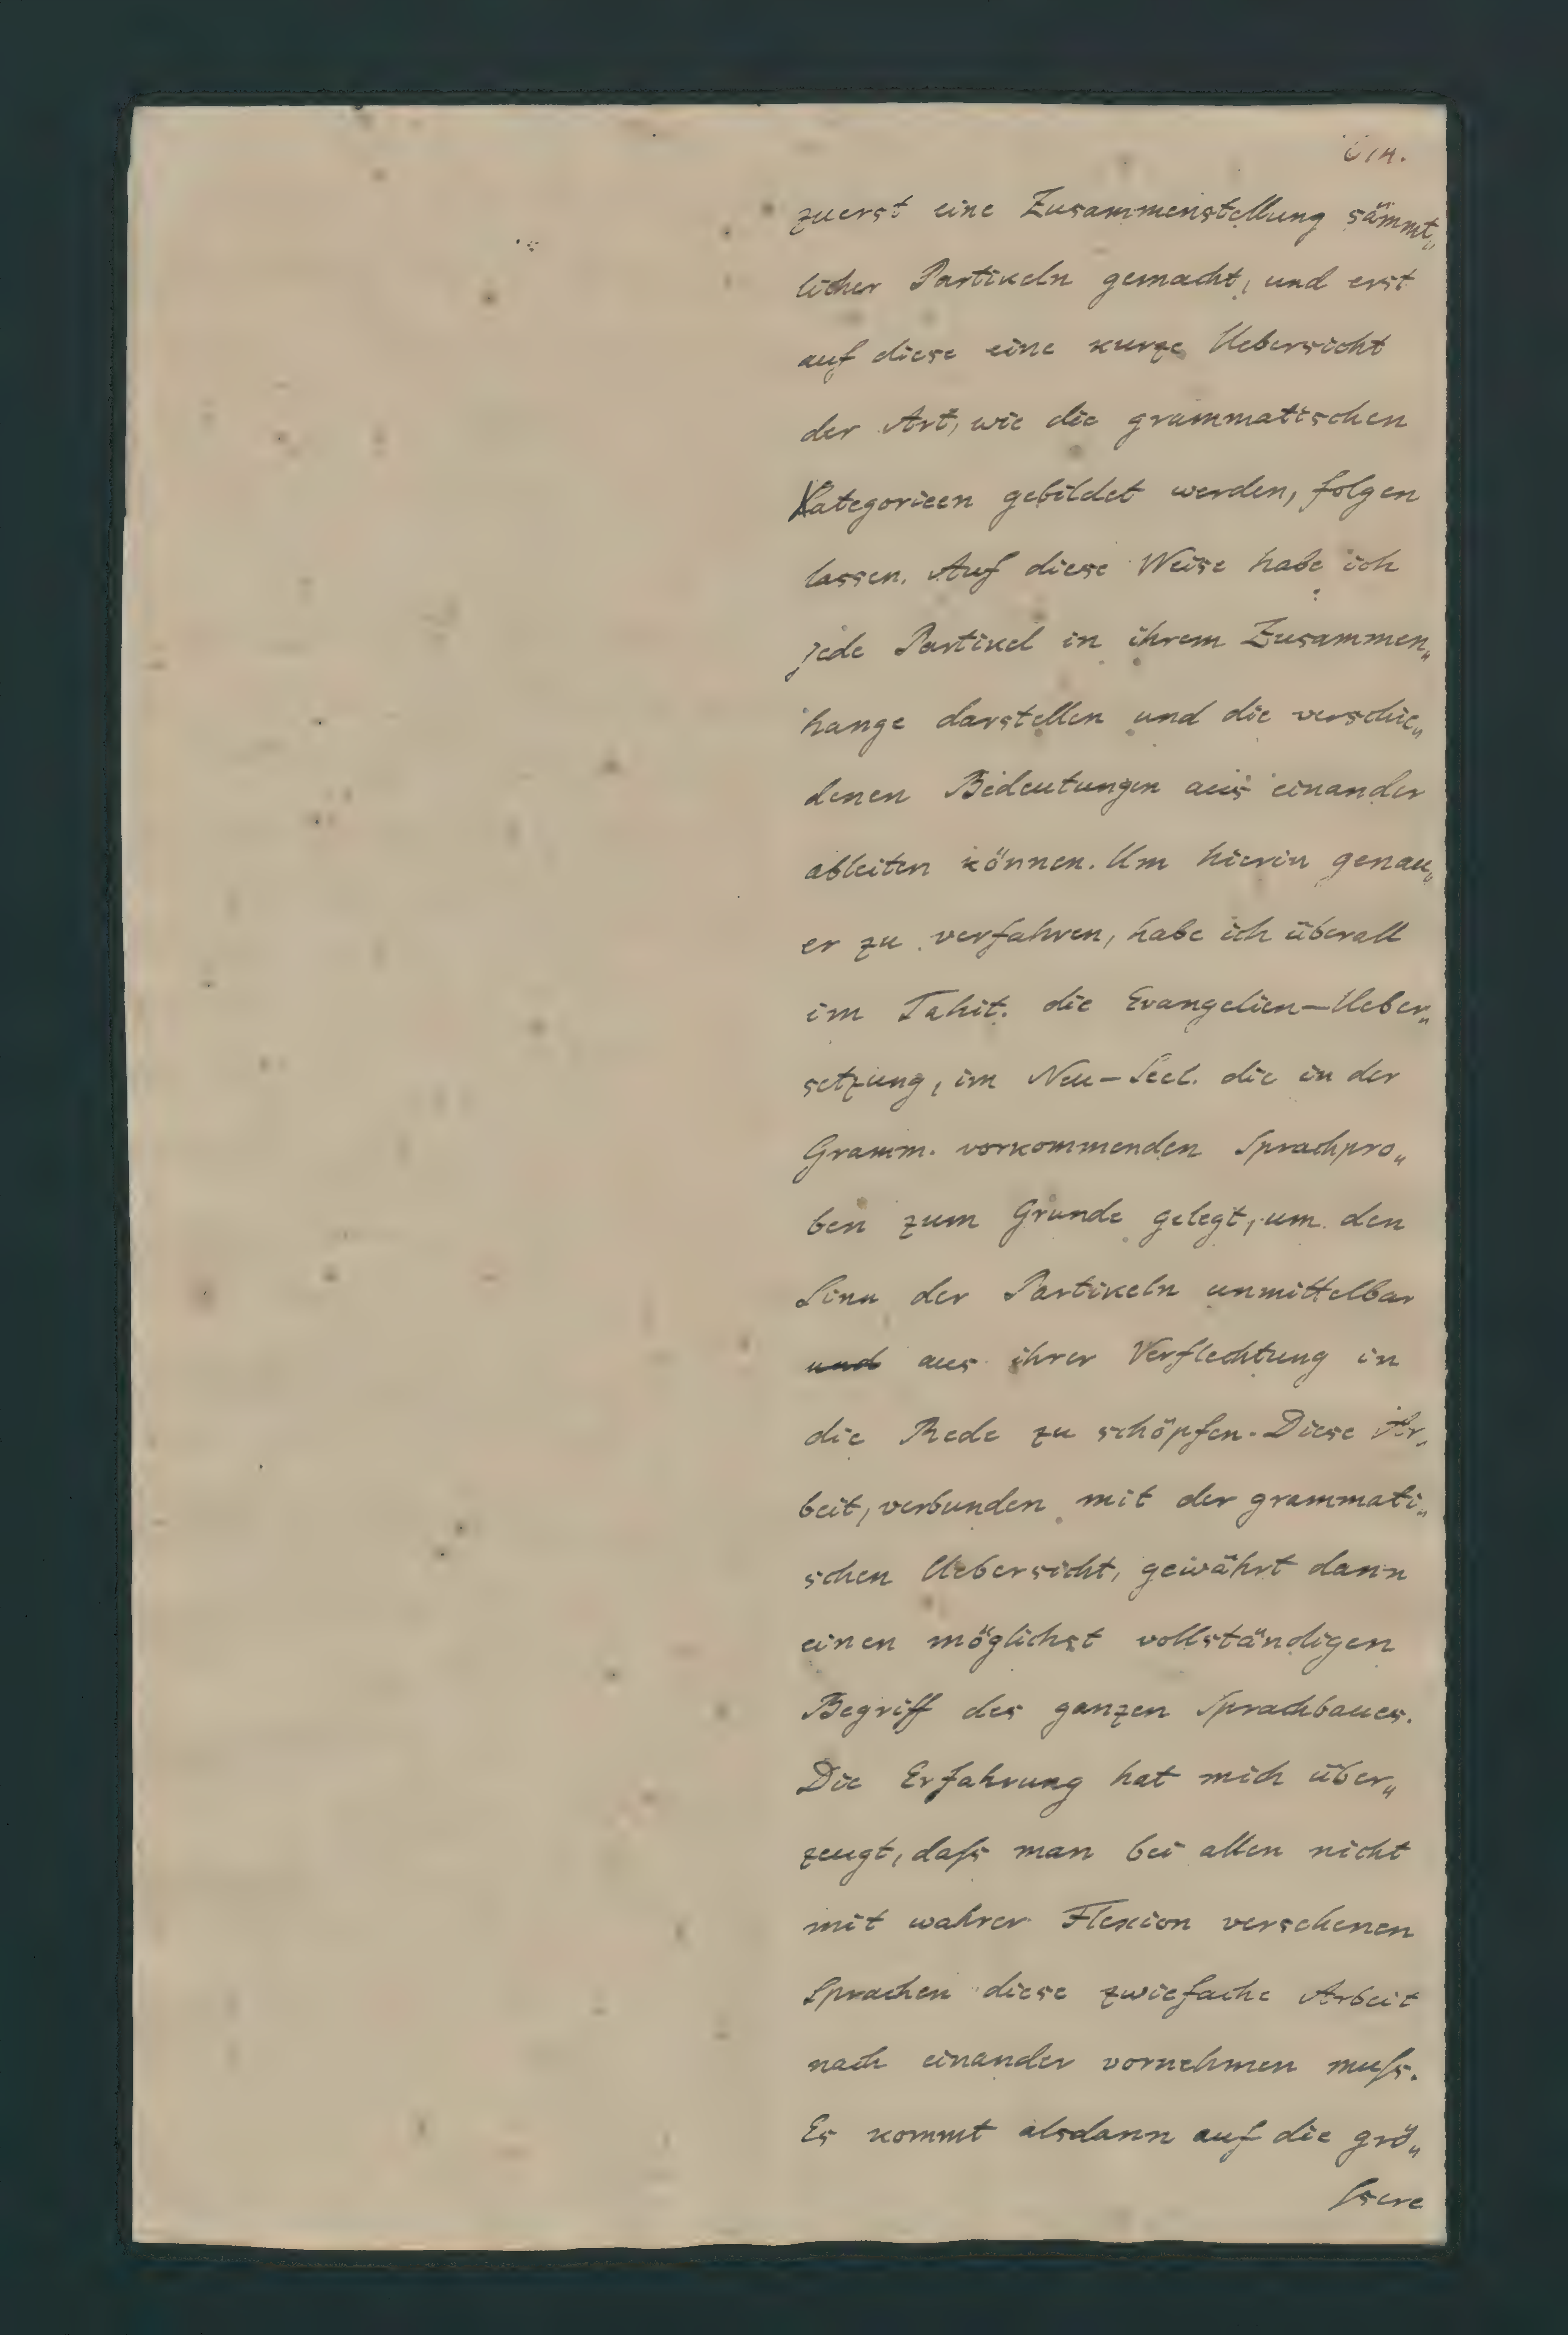 zuerst eine Zusammenstellung sämmt„
licher Partikeln gemacht, und erst
auf diese eine kurze Uebersicht
der Art, wie die grammatischen
Kategorieen gebildet werden, folgen
lassen. Auf diese Weise habe ich
jede Partikel in ihrem Zusammen„
hange darstellen und die verschie„
denen Bedeutungen aus einander
ableiten können. Um hierin genau„
er zu verfahren, habe ich überall
im Tahit. die Evangelien-Ueber„
setzung, im Neu-Seel. die in der
Gramm. vorkommenden Sprachpro„
ben zum Grunde gelegt, um den
Sinn der Partikeln unmittelbar
und aus ihrer Verflechtung in
die Rede zu schöpfen. Diese Ar„
beit, verbunden mit der grammati„
schen Uebersicht, gewährt dann
einen möglichst vollständigen
Begriff des ganzen Sprachbaues.
Die Erfahrung hat mich über„
zeugt, daſs man bei allen nicht
mit wahrer Flexion versehenen
Sprachen diese zwiefache Arbeit
nach einander vornehmen muſs.
Es kommt alsdann auf die grö„
ſsere